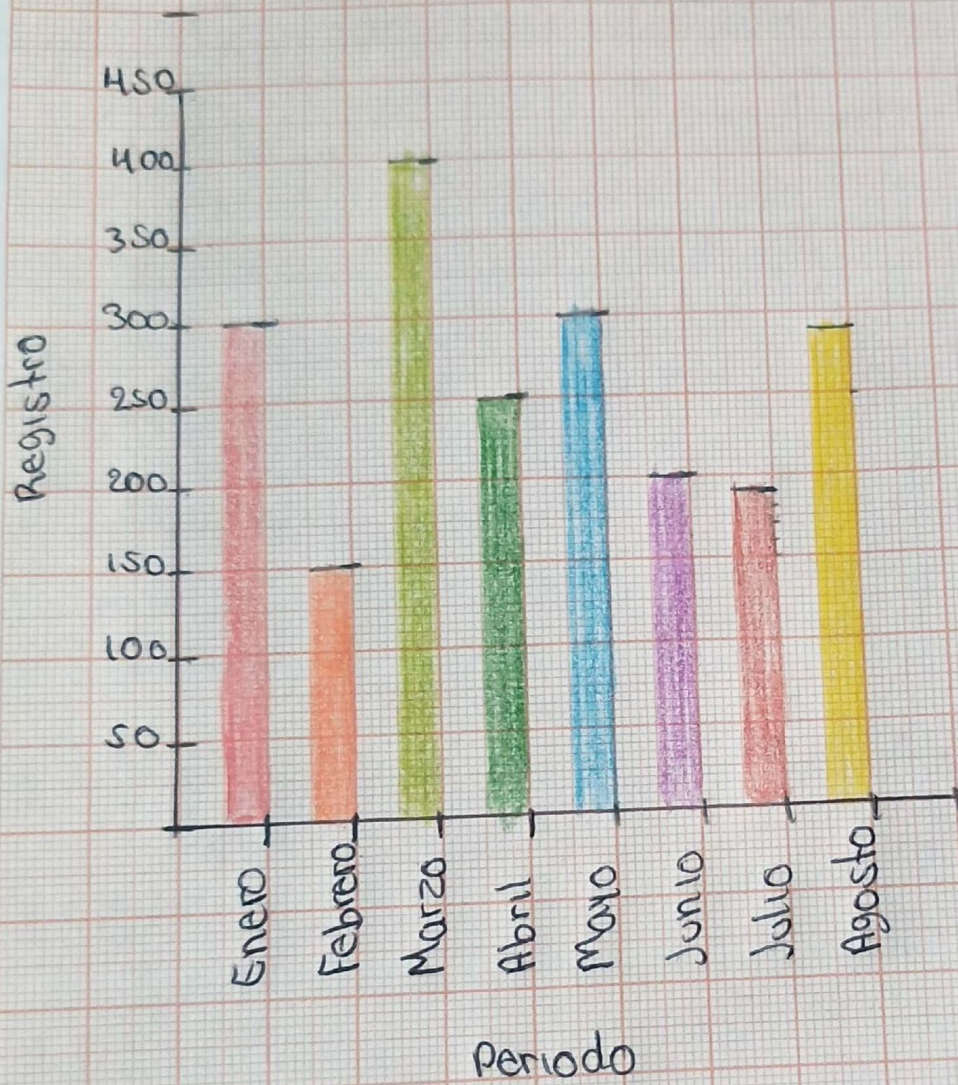 450
400
350
300
250
200
150
100
50
Registro
Enero
Febrero
Marzo
Abril
Mayo
Junio
Julio
Agosto
Periodo